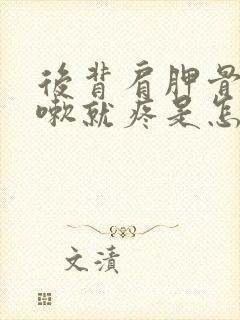 後背肩胛骨
嗽就疼是怎
文漬